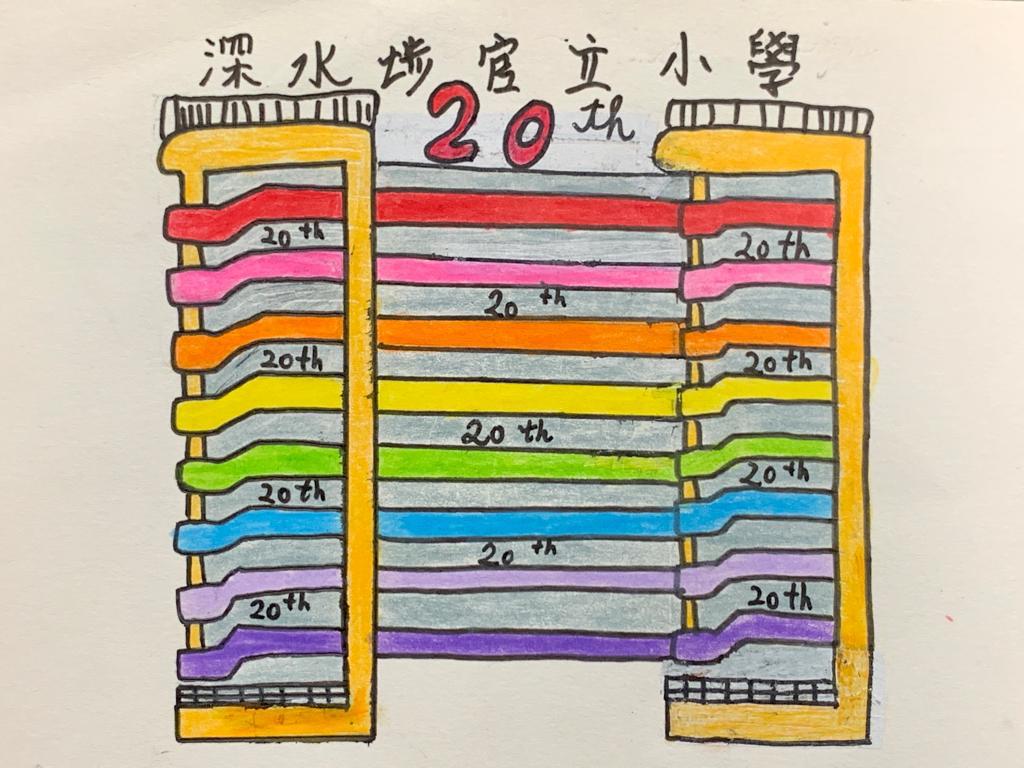 深水埗官立小學
20th
20th
20th
20th
20th
20th
20th
20th
20th
20th
20th
20th